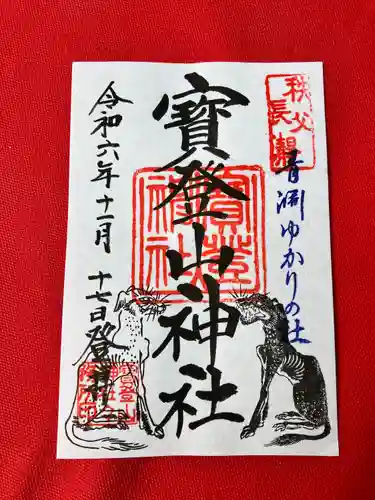 秩父
長瀞
青淵ゆかりの社
寳登山神社
寳登山神社
令和六年十一月十七日登拝